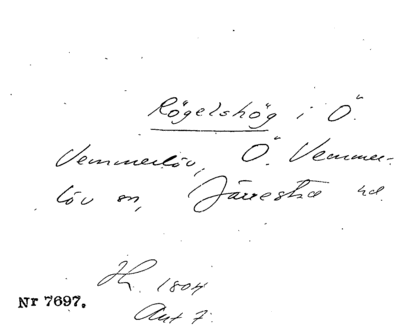 Rögelshög i Ö.
Vemmerlöv, Ö. Vemmer-
löv sn, Järrestad hd.
1804
Ant 7.
Nr 7697.